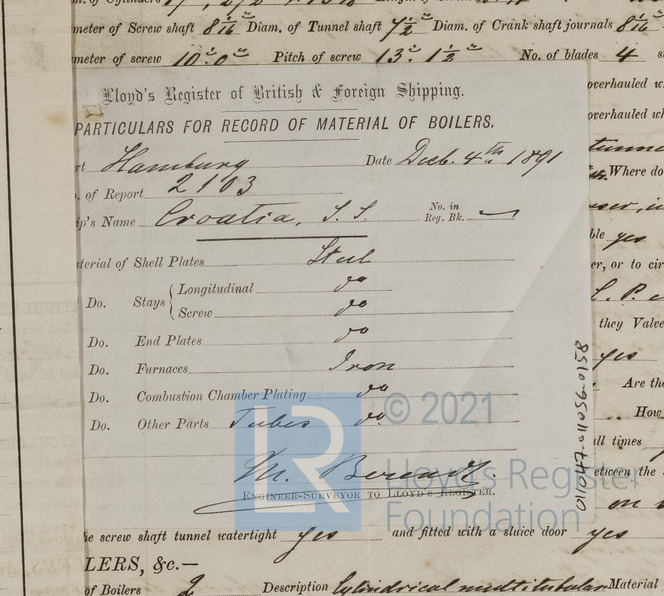 meter of Screw shaft 8 1/16" Diam. of Tunnel shaft 7 1/2" Diam. of Crank shaft journals 8 1/16
meter of screw 10'-0" Pitch of screw 13'-1 1/2" No. of blades 4
overhauled
Lloyd's Register of British & Foreign Shipping.
PARTICULARS FOR RECORD OF MATERIAL OF BOILERS.
rt Hamburg Date Decb. 4th 1891
. of Report 2103
Where do
ip's Name Croatia, S.S. No. in Reg. Bk.
ble yes
terial of Shell Plates Steel
er, or to cir
Do. Stays { Longitudinal do
Screw do
they Valve
Do. End Plates do
yes
Do. Furnaces Iron
Are the
Do. Combustion Chamber Plating do
How
Do. Other Parts Tubes do
all times
© 2021
M. Berendt
etween the
ENGINEER-SURVEYOR TO LLOYD'S REGISTER.
LR
Lloyd's Register
Foundation
011047-011056-0158
he screw shaft tunnel watertight yes and fitted with a sluice door yes
LERS, &c.—
of Boilers 2 Description Cylindrical multitubular Material